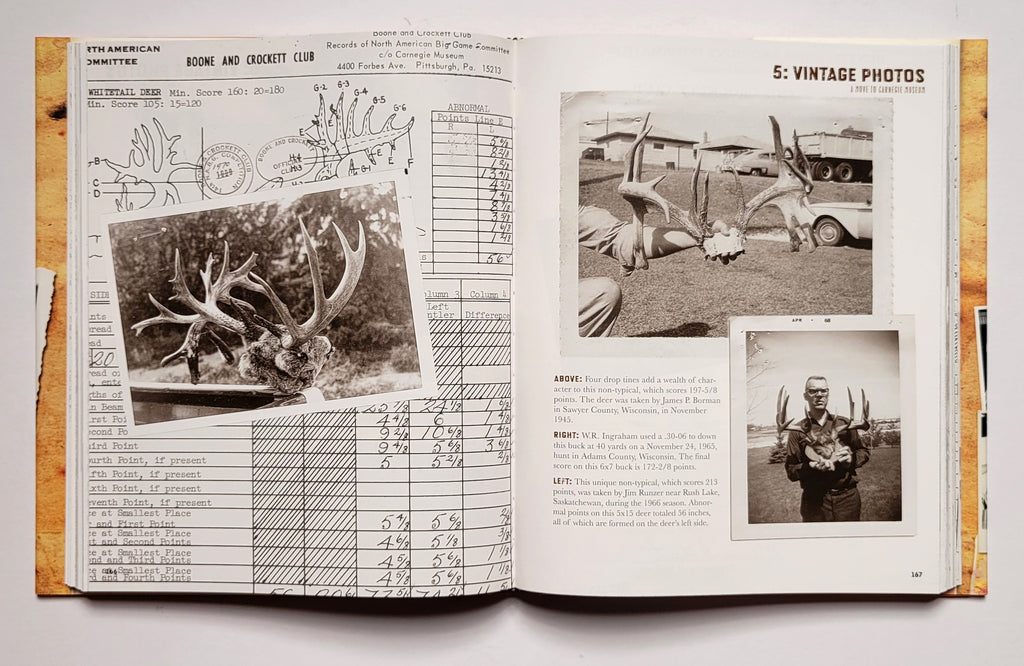 RTH AMERICAN
OMMITTEE
BOONE AND CROCKETT CLUB
Boone and Crockett Club
Records of North American Big Game Committee
c/o Carnegie Museum
4400 Forbes Ave. Pittsburgh, Pa. 15213
WHITETAIL DEER Min. Score 160: 20=180
Min. Score 105: 15=120
G-2
G-3
G-4
G-5
G-6
E
E
E
E
F
B
C
D
ABNORMAL
Points Line E
R L
56
SIDE
Column 3 Column 4
Left
ntler Difference
20
n Beam
irst Po
econd Po
hird Point 9 4/8 5 6/8
ourth Point, if present 5 5 2/8
ifth Point, if present
ixth Point, if present
eventh Point, if present
e at Smallest Place
and First Point 5 4/8 5 6/8
e at Smallest Place
t and Second Points 4 6/8 5 1/8
e at Smallest Place
ond and Third Points 4 5/8 5 6/8
ce at Smallest Place
rd and Fourth Points 4 5/8 5 6/8
5: VINTAGE PHOTOS
A MOVE TO CARNEGIE MUSEUM
APR • 68
ABOVE: Four drop tines add a wealth of char-
acter to this non-typical, which scores 197-5/8
points. The deer was taken by James P. Borman
in Sawyer County, Wisconsin, in November
1945.
RIGHT: W.R. Ingraham used a .30-06 to down
this buck at 40 yards on a November 24, 1965,
hunt in Adams County, Wisconsin. The final
score on this 6x7 buck is 172-2/8 points.
LEFT: This unique non-typical, which scores 213
points, was taken by Jim Runzer near Rush Lake,
Saskatchewan, during the 1966 season. Abnor-
mal points on this 5x15 deer totaled 56 inches,
all of which are formed on the deer's left side.
167